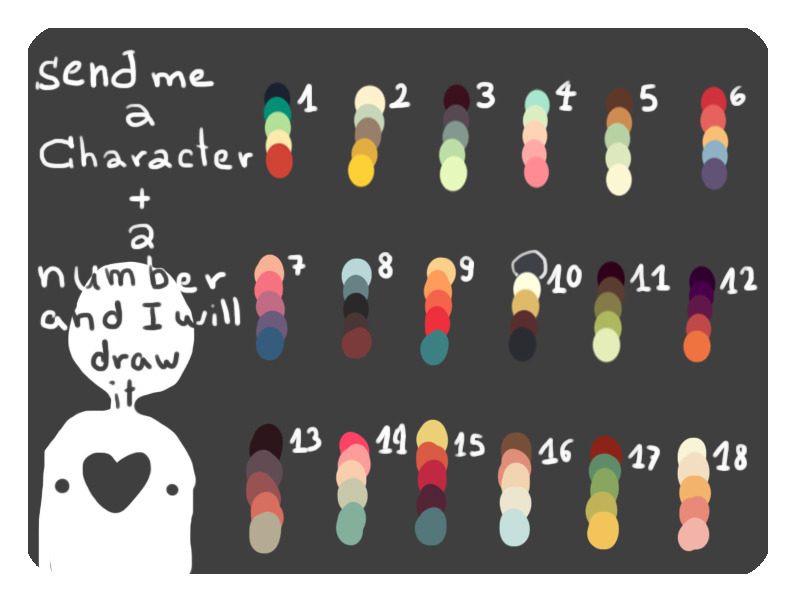 send me
a
Character
+
a
number
and I will
draw
it
1 2 3 4 5 6
7 8 9 10 11 12
13 14 15 16 17 18